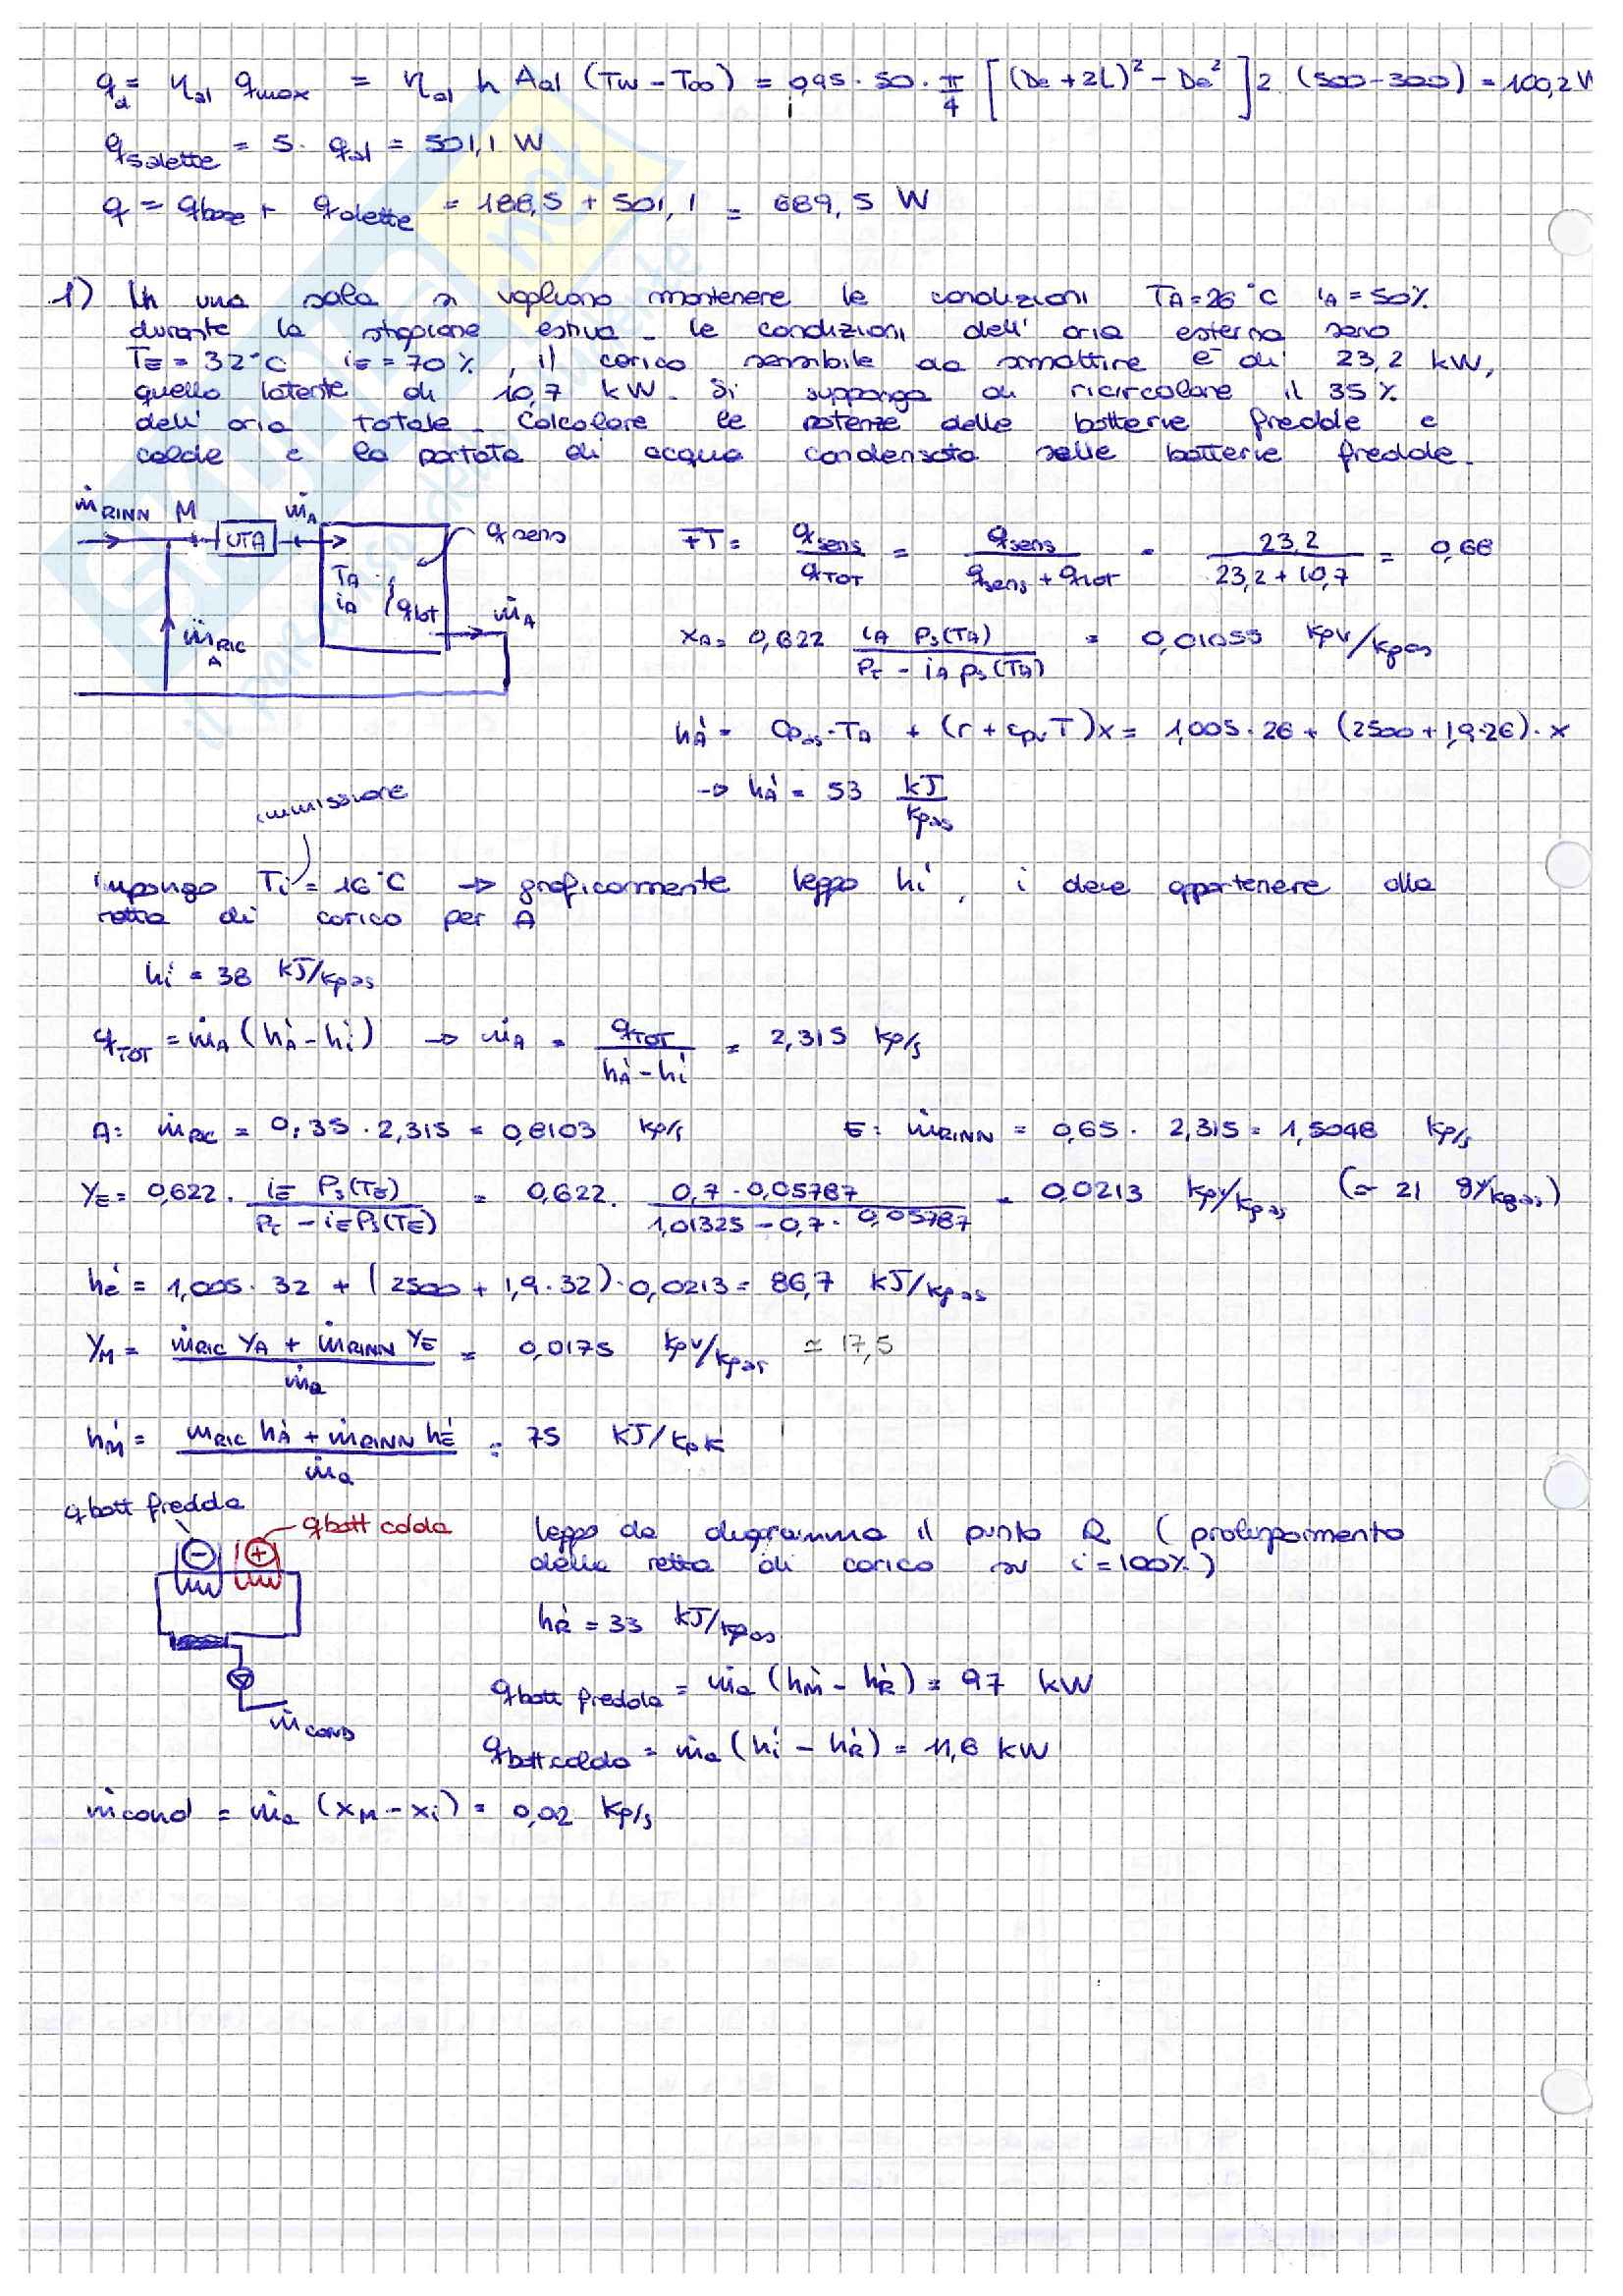 q_al = η_al q_max = η_al h A_al (Tw - T∞) = 0,95 · 50 · π/4 [(De + 2L)² - De²] 2 (500 - 300) = 100,2 W
q_5alette = 5 · q_al = 501,1 W
q = q_base + q_alette = 188,5 + 501,1 = 689,5 W
1) In una sala si vogliono mantenere le condizioni TA = 26°C iA = 50%
durante la stagione estiva. Le condizioni dell'aria esterna sono
TE = 32°C iE = 70%, il carico sensibile da smaltire è di 23,2 kW,
quello latente di 10,7 kW. Si supponga di ricircolare il 35%
dell'aria totale. Calcolare le potenze delle batterie fredde e
calde e la portata di acqua condensata nelle batterie fredde.
ṁRINN M ṁA
UTA
q sens
TA
iA
q lat
ṁA
ṁRIC
A
FT = q_sens / q_TOT = q_sens / (q_sens + q_lat) = 23,2 / (23,2 + 10,7) = 0,68
xA = 0,622 iA ps(TA) / (Pt - iA ps(TA)) = 0,01055 kgv/kgas
h'A = Cp_as · TA + (r + cpv T) x = 1,005 · 26 + (2500 + 1,9 · 26) · x
→ h'A = 53 kJ/kgas
immissione
Impongo Ti = 16°C → graficamente leggo h'i, i deve appartenere alla
retta di carico per A
h'i = 38 kJ/kgas
q_TOT = ṁA (h'A - h'i) → ṁA = q_TOT / (h'A - h'i) = 2,315 kg/s
A: ṁRIC = 0,35 · 2,315 = 0,8103 kg/s E: ṁRINN = 0,65 · 2,315 = 1,5048 kg/s
YE = 0,622 · iE Ps(TE) / (Pt - iE Ps(TE)) = 0,622 · 0,7 · 0,05787 / (1,01325 - 0,7 · 0,05787) = 0,0213 kgv/kgas (≈ 21 gv/kgas)
h'E = 1,005 · 32 + (2500 + 1,9 · 32) · 0,0213 = 86,7 kJ/kgas
YM = (ṁRIC YA + ṁRINN YE) / ṁa = 0,0175 kgv/kgas ≈ 17,5
h'M = (ṁRIC h'A + ṁRINN h'E) / ṁa = 75 kJ/kg K
q batt fredda
q batt calda
ṁ COND
Leggo da diagramma il punto R (prolungamento
della retta di carico su i = 100%)
h'R = 33 kJ/kgas
q_batt fredda = ṁa (h'M - h'R) = 97 kW
q_batt calda = ṁa (h'i - h'R) = 11,6 kW
ṁcond = ṁa (xM - xi) = 0,02 kg/s